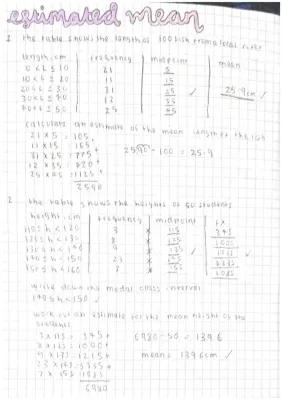 estimated mean
1 the table shows the length of 100 fish from a local river
length, cm frequency midpoint mean
0 < L ≤ 10 21 5
10 < L ≤ 20 11 15
20 < L ≤ 30 31 25 25.9cm ✓
30 < L ≤ 40 12 35
40 < L ≤ 50 25 45
calculate an estimate of the mean length of the fish
21 x 5 = 105 +
11 x 15 = 165 +
31 x 25 = 775 + 2590 ÷ 100 = 25.9
12 x 35 = 420 +
25 x 45 = 1125 +
2590
2 the table shows the heights of 50 students
height, cm frequency midpoint fx
110 ≤ h < 120 3 x 115 345
120 ≤ h < 130 8 x 125 1000
130 ≤ h < 140 9 x 135 1215
140 ≤ h < 150 23 x 145 3335
150 ≤ h < 160 7 x 155 1085
write down the modal class interval
140 ≤ h < 150 ✓
work out an estimate for the mean height of the
students
3 x 115 = 345 + 6980 ÷ 50 = 139.6
8 x 125 = 1000 +
9 x 135 = 1215 + mean = 139.6cm ✓
23 x 145 = 3335 +
7 x 155 = 1085
6980